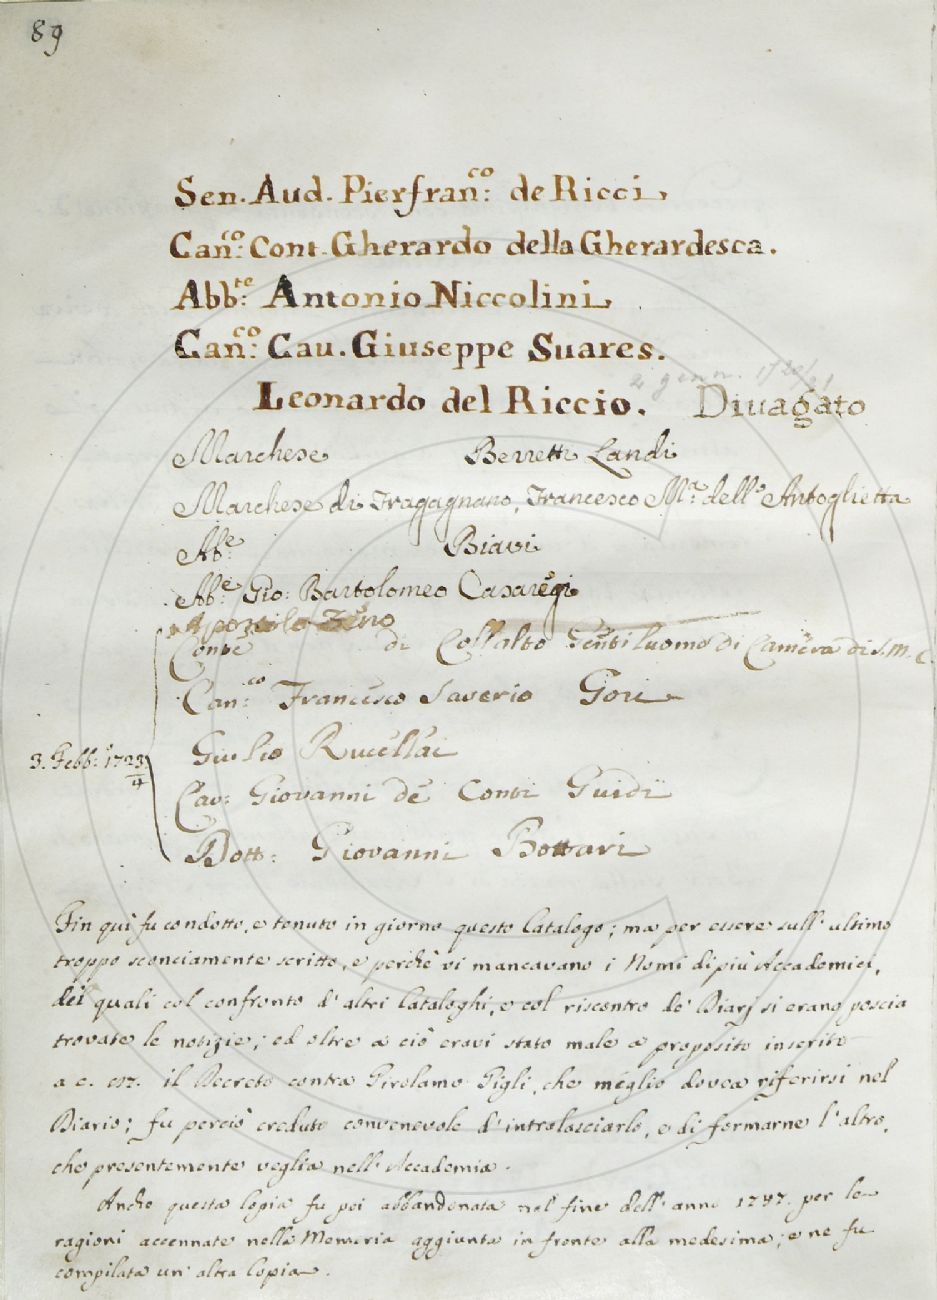 89
Sen. Aud. Pierfran.co de Ricci.
Can.co Cont. Gherardo della Gherardesca.
Abb.te Antonio Niccolini
Can.co Cau. Giuseppe Suares.
2 genn. 1720/21
Leonardo del Riccio. Diuagato
Marchese Berretti Landi
Marchese di Fragagnano, Francesco M.a dell'Antoglietta
Ab.e Biavi
Ab.e Gio: Bartolomeo Casaregi
Apostolo Zeno
Conte di Collalto Gentiluomo di Camera di S. M. C.
Can.co Francesco Saverio Gori
3. Febb.o 1723/4
Giulio Rucellai
Cav: Giovanni de Conti Guidi
Dott: Giovanni Bottari
Fin quì fu condotto, e tenuto in giorno questo Catalogo; ma per essere sull'ultimo
troppo sconciamente scritto, e perchè vi mancavano i Nomi di più Accademici,
dei quali col confronto d'altri Cataloghi, e col riscontro de' Diarj si erano poscia
trovate le notizie; ed oltre a ciò eravi stato male a proposito inserito
a c. 157. il Decreto contra Girolamo Gigli, che meglio dovea riferirsi nel
Diario; fu perciò creduto convenevole d'intralasciarlo, e di formarne l'altro,
che presentemente veglia nell'Accademia.
Anche questa Copia fu poi abbandonata nel fine dell'anno 1747. per le
ragioni accennate nella Memoria aggiunta in fronte alla medesima; e ne fu
compilata un'altra Copia.